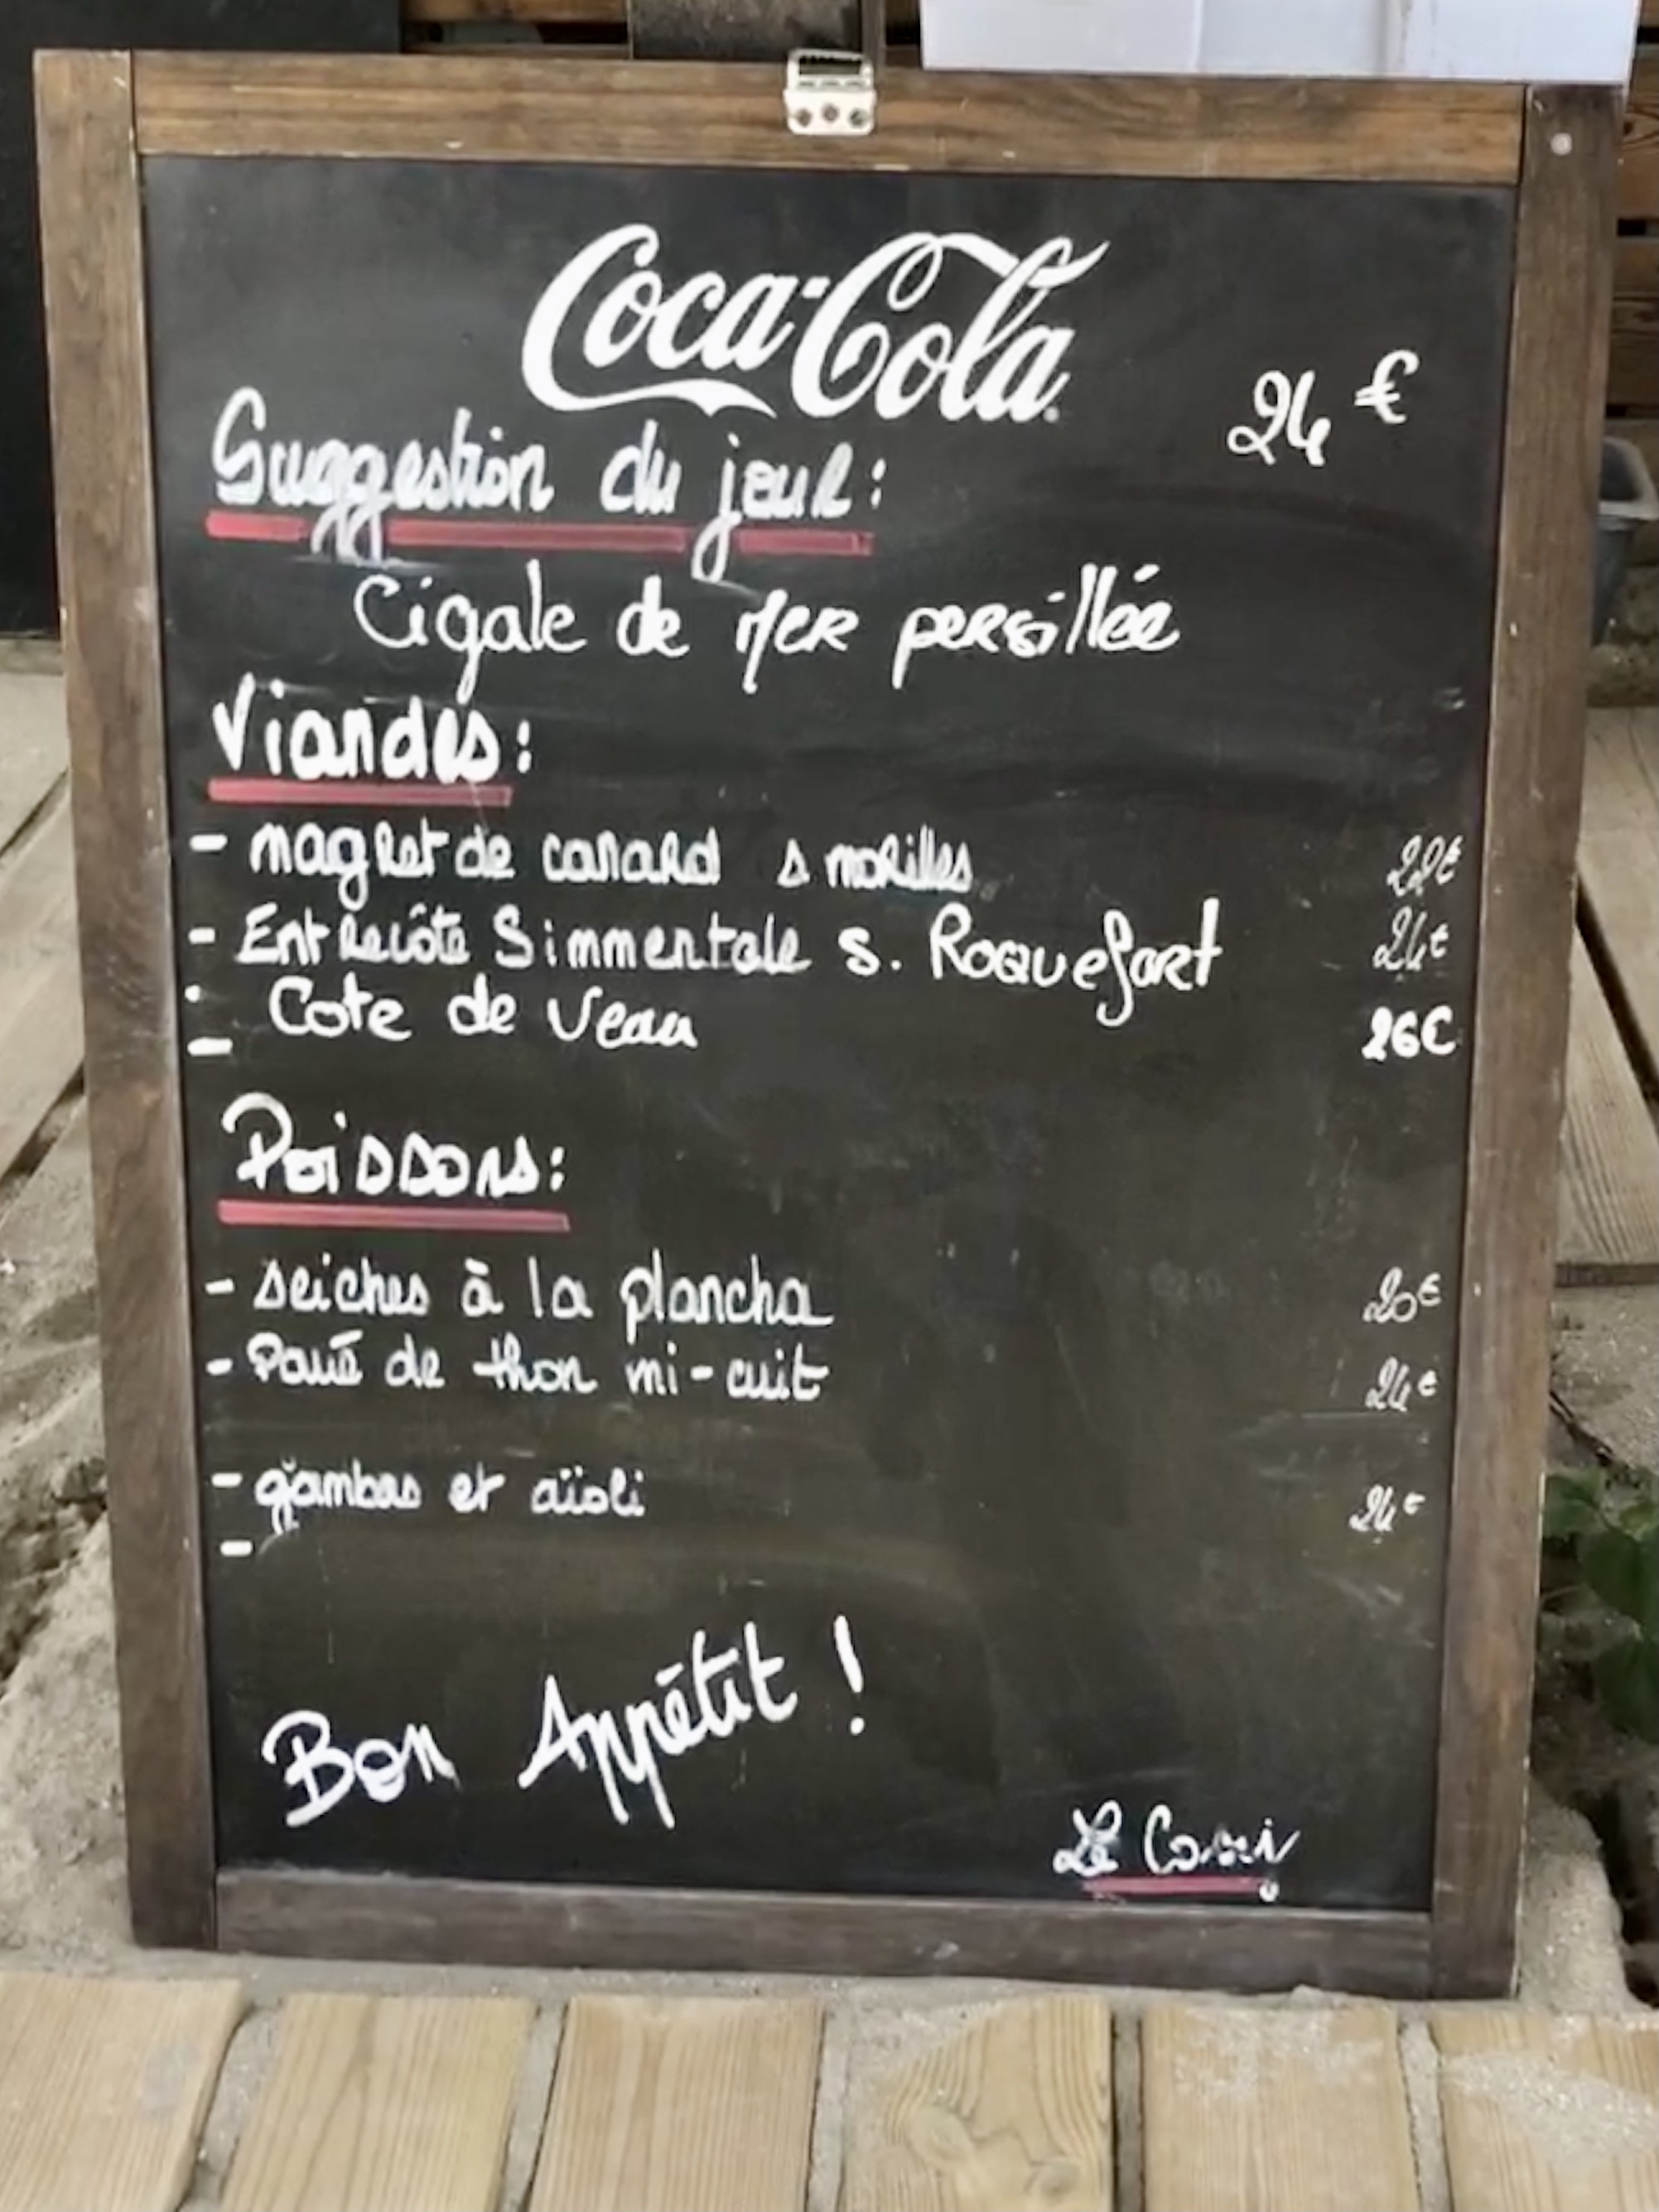 Coca-Cola
24 €
Suggestion du jour :
Cigale de Mer persillée
Viandes :
- magret de canard s morilles 22€
- Entrecôte Simmentale s. Roquefort 24€
- Cote de Veau 26€
Poissons :
- seiches à la plancha 20€
- Pavé de thon mi-cuit 24€
- gambas et aïoli 24€
-
Bon Appétit !
Le